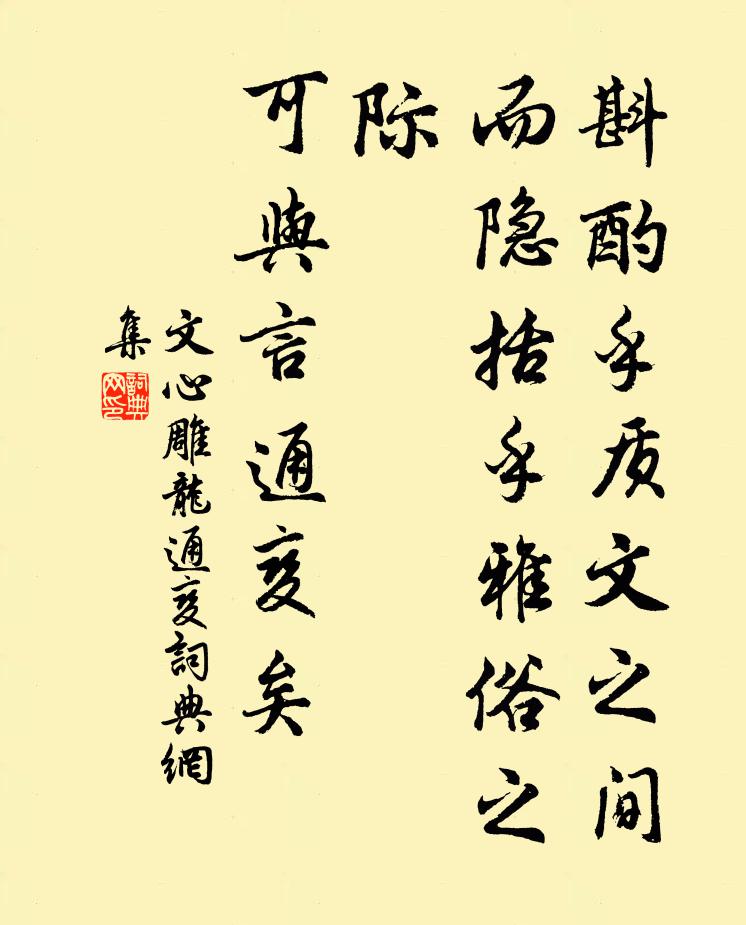 斟酌乎质文之间
而隐括乎雅俗之
际
可與言通变矣
文心雕龍通变詞典網
集
詞典
网印